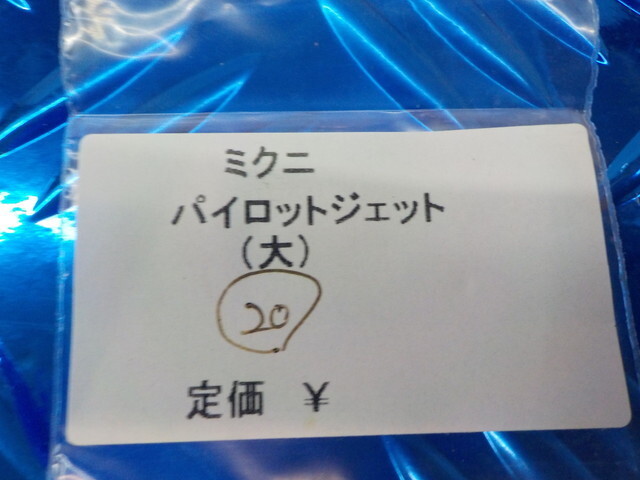 ミクニ
パイロットジェット
(大)
20
定価 ¥